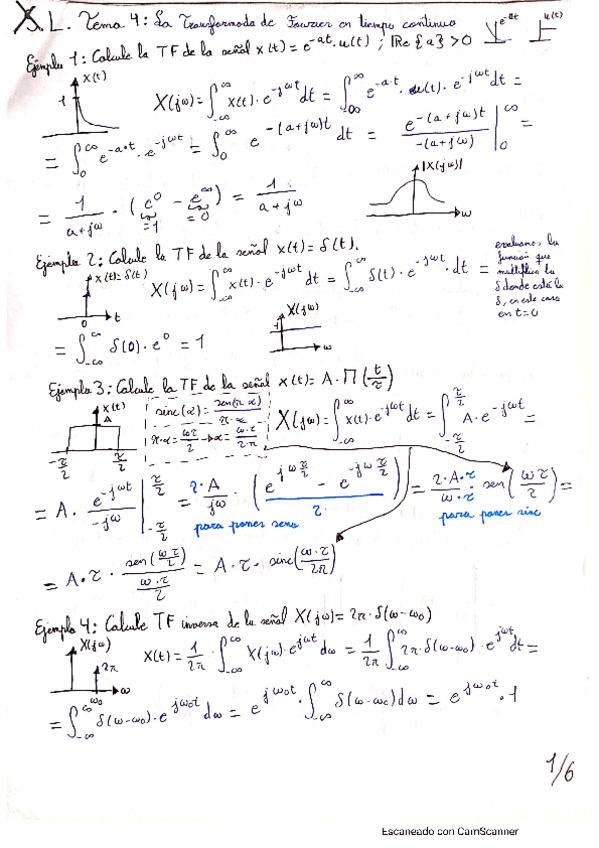 S.L. Tema 4: La Transformada de Fourier en tiempo continuo e^{-at} u(t)
Ejemplo 1: Calcule la TF de la señal x(t) = e^{-at}·u(t) ; Re{a} > 0
x(t)
1
X(jω) = ∫_{-∞}^{∞} x(t)·e^{-jωt} dt = ∫_{-∞}^{∞} e^{-a·t}·u(t)·e^{-jωt} dt =
= ∫_0^∞ e^{-a·t}·e^{-jωt} = ∫_0^∞ e^{-(a+jω)t} dt = e^{-(a+jω)t} / -(a+jω) |_0^∞ =
= 1/(a+jω) · (e^0 - e^∞) = 1/(a+jω)
=1 =0
|X(jω)|
ω
Ejemplo 2: Calcule la TF de la señal x(t) = δ(t).
x(t) = δ(t)
0 t
X(jω) = ∫_{-∞}^{∞} x(t)·e^{-jωt} dt = ∫_{-∞}^{∞} δ(t)·e^{-jωt}·dt =
evaluamos la
función que
multiplica la
δ donde está la
δ, en este caso
en t=0
= ∫_{-∞}^{∞} δ(0)·e^0 = 1
X(jω)
1
ω
Ejemplo 3: Calcule la TF de la señal x(t) = A·Π(t/τ)
x(t)
A
-τ/2 τ/2
sinc(α) = sen(π·α)/(π·α)
π·α = ωτ/2 → α = ω·τ/(2π)
X(jω) = ∫_{-∞}^{∞} x(t)·e^{-jωt} dt = ∫_{-τ/2}^{τ/2} A·e^{-jωt} =
= A · e^{-jωt}/(-jω) |_{-τ/2}^{τ/2} = 2·A/(jω) · (e^{jωτ/2} - e^{-jωτ/2})/2 = 2·A·τ/(ω·τ) sen(ωτ/2) =
para poner seno para poner sinc
= A·τ · sen(ω·τ/2)/(ω·τ/2) = A·τ · sinc(ω·τ/2π)
Ejemplo 4: Calcule TF inversa de la señal X(jω) = 2π·δ(ω-ω₀)
X(jω)
2π
ω₀ ω
X(t) = 1/2π · ∫_{-∞}^{∞} X(jω)·e^{jωt} dω = 1/2π ∫_{-∞}^{∞} 2π·δ(ω-ω₀)·e^{jωt} dt =
= ∫_{-∞}^{∞} δ(ω-ω₀)·e^{jω₀t} dω = e^{jω₀t} · ∫_{-∞}^{∞} δ(ω-ω₀) dω = e^{jω₀t}·1
1/6
Escaneado con CamScanner